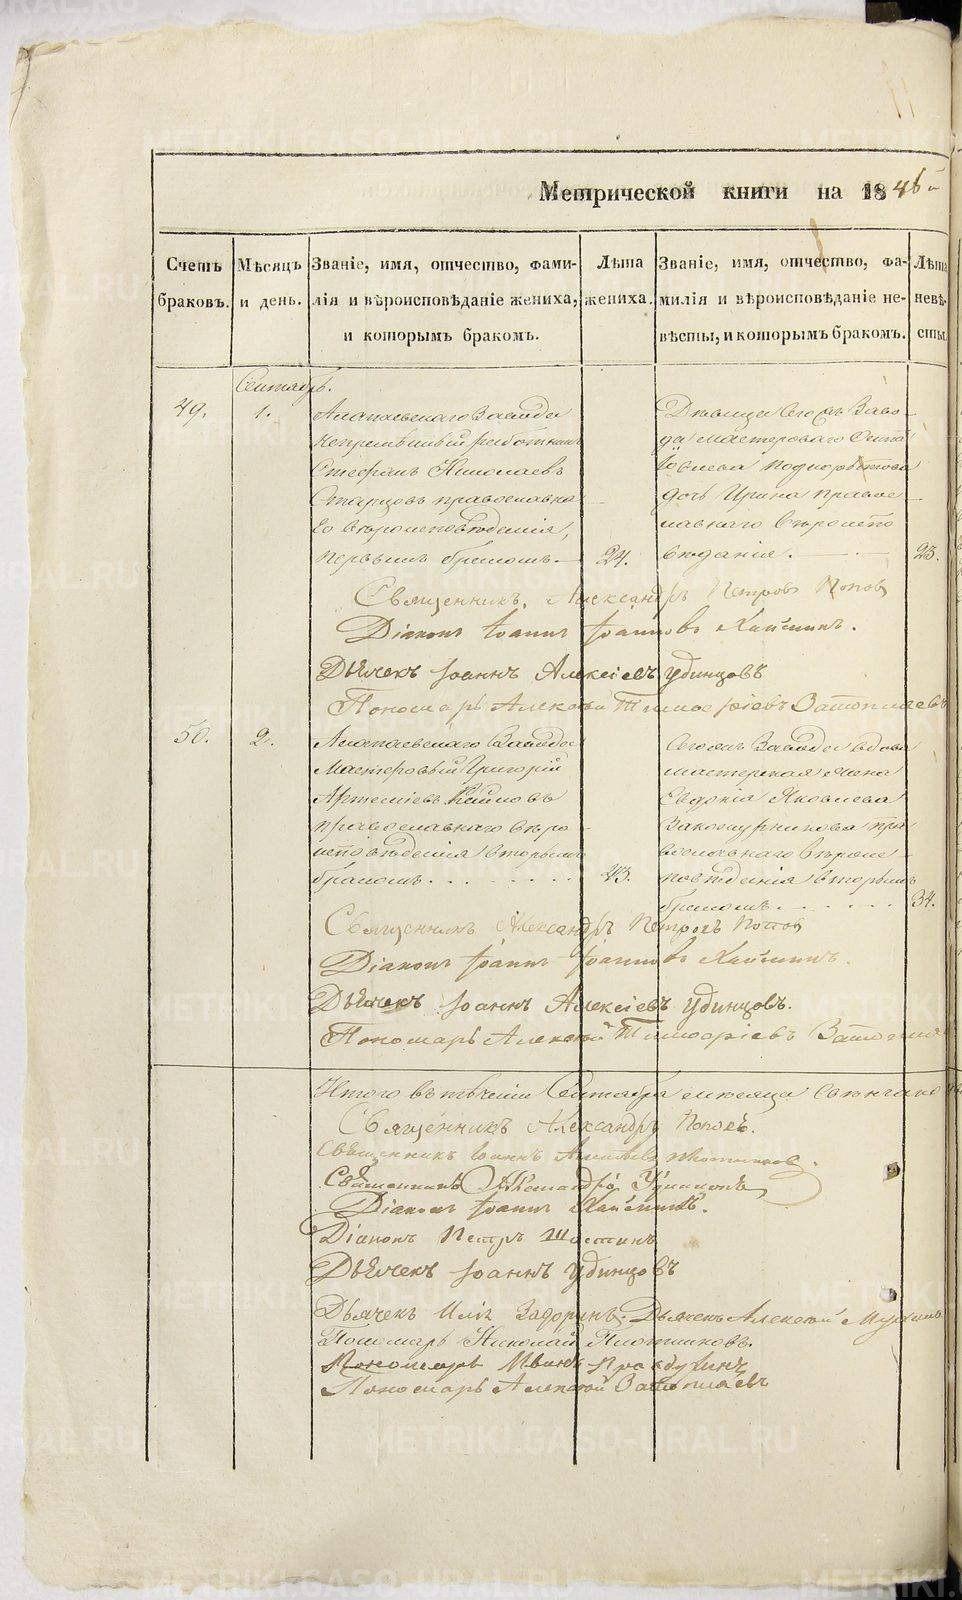 Метрической книги на 1846й
Счетъ браковъ.
Мѣсяцъ и день.
Званіе, имя, отчество, фами-
лія и вѣроисповѣданіе жениха,
и которымъ бракомъ.
Лѣта жениха.
Званіе, имя, отчество, фа-
милія и вѣроисповѣданіе не-
вѣсты, и которымъ бракомъ.
Лѣта невѣ-
сты.
Сентябрь.
49.
1.
Алапаевскаго Завода
непремѣнный работникъ
Стефанъ Николаевъ
Старцовъ православна
го вѣроисповѣданія,
первымъ бракомъ.
24.
Дѣвица Сего жъ Заво-
да мастероваго
Иовлева
дочь Ирина право
славнаго вѣроиспо
вѣданія.
23.
Священникъ Александръ Петровъ Поповъ
Діаконъ Іоаннъ Іоанновъ
Дьячекъ Іоаннъ Алексіевъ Удинцовъ
Пономарь Алексѣй Тимофіевъ Затопляевъ
50.
2.
Алапаевскаго Завода
Мастеровый Григорій
Артеміевъ
православнаго вѣро
исповѣданія вторымъ
бракомъ
43.
Сего жъ Завода вдова
мастерская жена
Евдокія Яковлева
пра
вославнаго вѣроис
повѣданія вторымъ
бракомъ
34.
Священникъ Александръ Петровъ Поповъ
Діаконъ Іоаннъ Іоанновъ
Дьячекъ Іоаннъ Алексіевъ Удинцовъ.
Пономарь Алексѣй Тимофіевъ
Итого въ теченіи Сентября месяца
Священникъ Александръ Поповъ.
Священникъ Іоаннъ
Священникъ Александръ Удинцовъ
Діаконъ Іоаннъ
Діаконъ Петръ
Дьячекъ Іоаннъ Удинцовъ
Дьячекъ Илія Задоринъ. Дьячекъ Алексѣй
Пономарь Николай Плотниковъ.
Пономарь
Пономарь Алексѣй Затопляевъ
METRIKI.GASO-URAL.RU